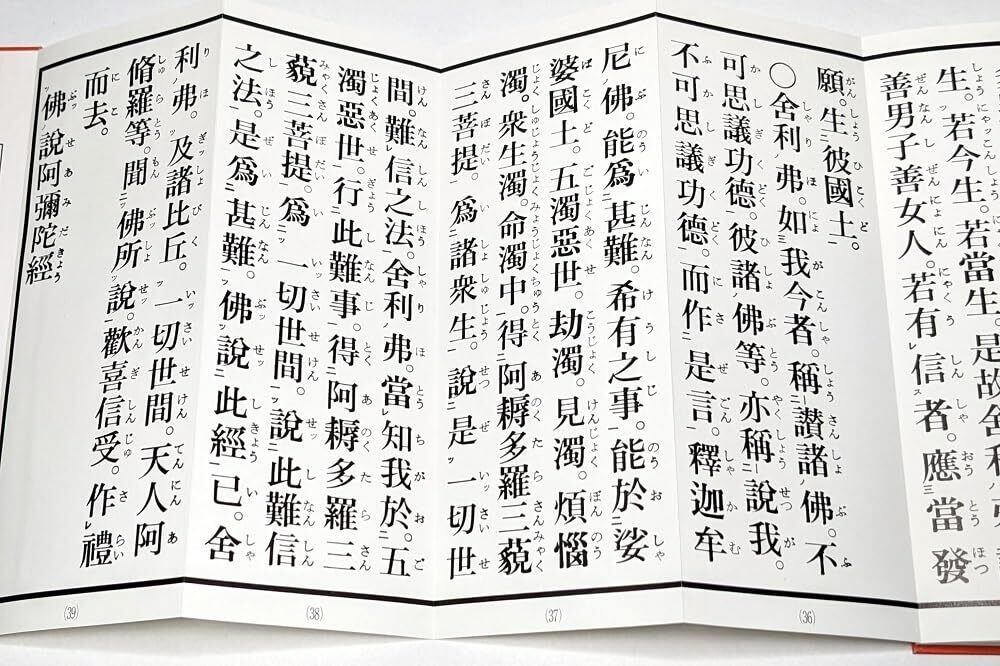 生。若今生。若當生。是故舍
善男子善女人。若有信者。應當發
願。生彼國土。
○舍利弗。如我今者。稱讚諸佛。不
可思議功德。彼諸佛等。亦稱說我。
不可思議功德。而作是言。釋迦牟
(36)
尼佛。能爲甚難。希有之事。能於娑
婆國土。五濁惡世。劫濁。見濁。煩惱
濁。衆生濁。命濁中。得阿耨多羅三藐
三菩提。爲諸衆生。說是一切世
(37)
間。難信之法。舍利弗。當知我於。五
濁惡世。行此難事。得阿耨多羅三
藐三菩提。爲一切世間。說此難信
之法。是爲甚難。佛說此經已。舍
(38)
利弗。及諸比丘。一切世間。天人阿
脩羅等。聞佛所說。歡喜信受。作禮
而去。
佛說阿彌陀經
(39)